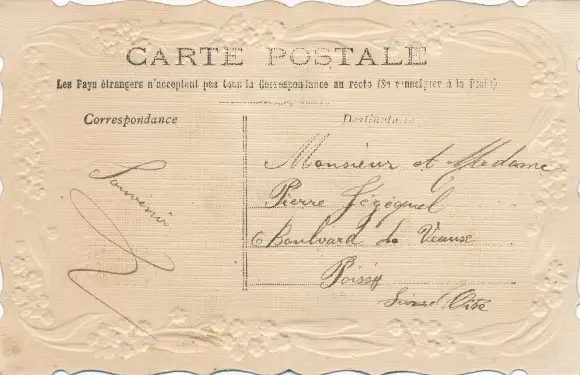 CARTE POSTALE
Les Pays étrangers n'acceptent pas tous la Correspondance au recto (Se renseigner à la Poste)
Correspondance
Souvenir
Destinataire
Monsieur et Madame
Pierre Jézéquel
6 Boulvard de
Poissy
Oise